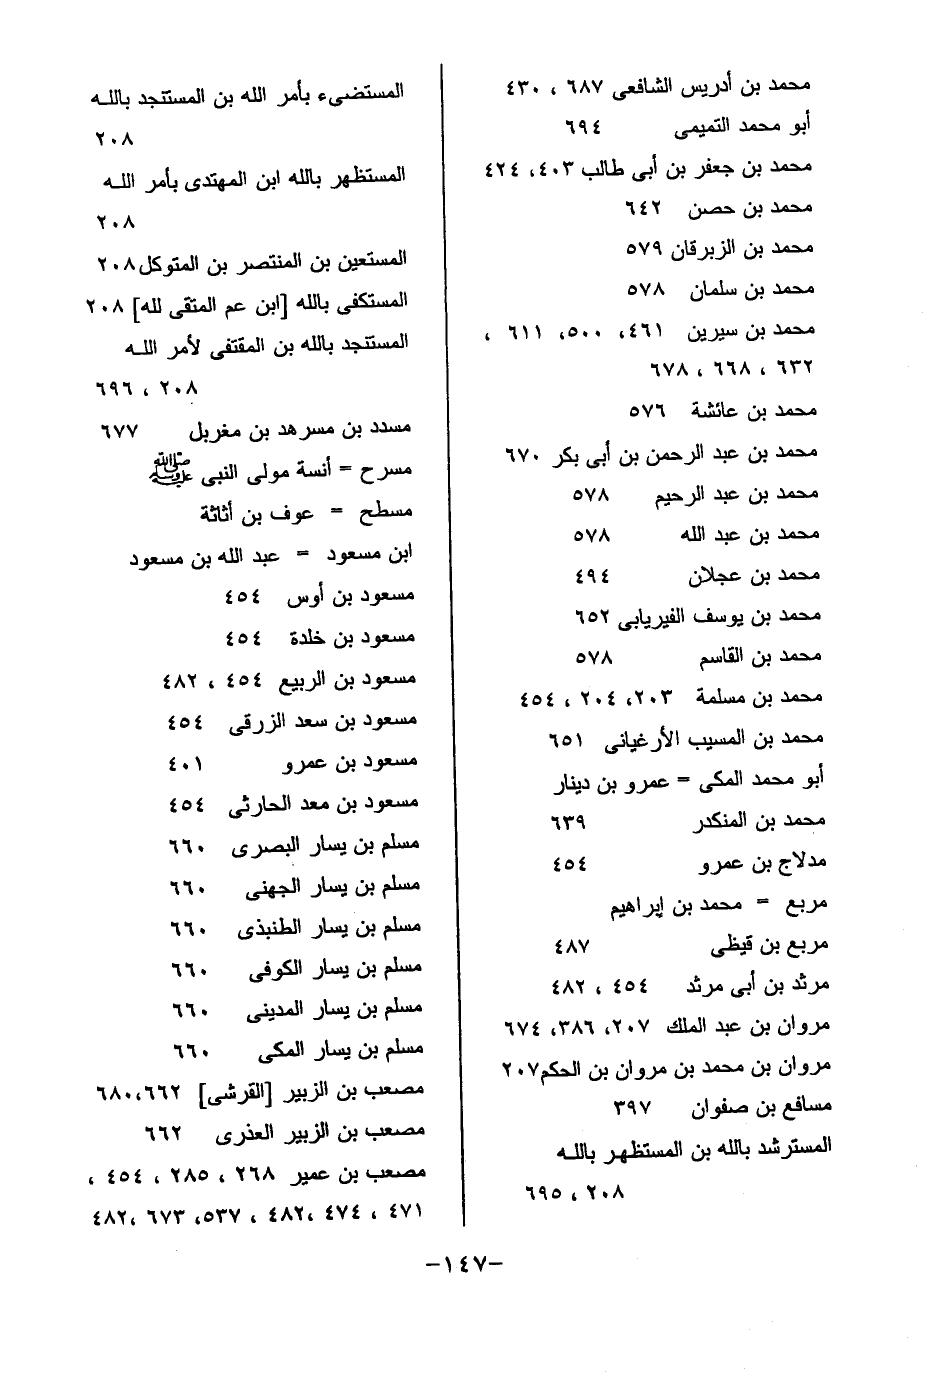 محمد بن أدريس الشافعى ٦٨٧ ، ٤٣٠
أبو محمد التميمى ٦٩٤
محمد بن جعفر بن أبى طالب ٤٠٣، ٤٢٤
محمد بن حصن ٦٤٢
محمد بن الزبرقان ٥٧٩
محمد بن سلمان ٥٧٨
محمد بن سيرين ٤٦١، ٥٠٠، ٦١١ ،
٦٣٢ ، ٦٦٨ ، ٦٧٨
محمد بن عائشة ٥٧٦
محمد بن عبد الرحمن بن أبى بكر ٦٧٠
محمد بن عبد الرحيم ٥٧٨
محمد بن عبد الله ٥٧٨
محمد بن عجلان ٤٩٤
محمد بن يوسف الفيريابى ٦٥٢
محمد بن القاسم ٥٧٨
محمد بن مسلمة ٢٠٣، ٢٠٤ ، ٤٥٤
محمد بن المسيب الأرغيانى ٦٥١
أبو محمد المكى = عمرو بن دينار
محمد بن المنكدر ٦٣٩
مدلاج بن عمرو ٤٥٤
مربع = محمد بن إبراهيم
مربع بن قيظى ٤٨٧
مرثد بن أبى مرثد ٤٥٤ ، ٤٨٢
مروان بن عبد الملك ٢٠٧، ٣٨٦، ٦٧٤
مروان بن محمد بن مروان بن الحكم٢٠٧
مسافع بن صفوان ٣٩٧
المسترشد بالله بن المستظهر بالله
٢٠٨ ، ٦٩٥
المستضىء بأمر الله بن المستنجد بالله
٢٠٨
المستظهر بالله ابن المهتدى بأمر الله
٢٠٨
المستعين بن المنتصر بن المتوكل٢٠٨
المستكفى بالله [ابن عم المتقى لله] ٢٠٨
المستنجد بالله بن المقتفى لأمر الله
٢٠٨ ، ٦٩٦
مسدد بن مسرهد بن مغربل ٦٧٧
مسرح = أنسة مولى النبى ﷺ
مسطح = عوف بن أثاثة
ابن مسعود = عبد الله بن مسعود
مسعود بن أوس ٤٥٤
مسعود بن خلدة ٤٥٤
مسعود بن الربيع ٤٥٤ ، ٤٨٢
مسعود بن سعد الزرقى ٤٥٤
مسعود بن عمرو ٤٠١
مسعود بن معد الحارثى ٤٥٤
مسلم بن يسار البصرى ٦٦٠
مسلم بن يسار الجهنى ٦٦٠
مسلم بن يسار الطنبذى ٦٦٠
مسلم بن يسار الكوفى ٦٦٠
مسلم بن يسار المدينى ٦٦٠
مسلم بن يسار المكى ٦٦٠
مصعب بن الزبير [القرشى] ٦٦٢،٦٨٠
مصعب بن الزبير العذرى ٦٦٢
مصعب بن عمير ٢٦٨ ، ٢٨٥ ، ٤٥٤ ،
٤٧١ ، ٤٧٤ ،٤٨٢ ، ٥٣٧، ٦٧٣ ،٤٨٢
-١٤٧-